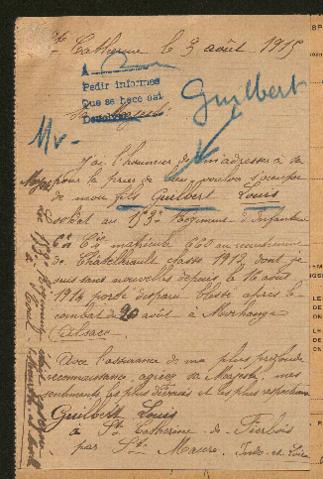 Ste Catherine le 3 août 1915
A
Pedir informes
Que se hece asi
Devolver
Sa Majesté
Guilbert
Mr
J'ai l'honneur de m'adresser à sa
pour la prier de bien vouloir s'occuper
de mon fils Guilbert Louis
soldat au 153e Régiment d'Infanterie
6e Cie matricule 626 au recrutement
de Chatellerault classe 1913, dont je
suis sans nouvelles depuis le 16 août
1914 porté disparu blessé après le
combat du 20 août à Morhange
Alsace
Avec l'assurance de ma plus profonde
reconnaissance, agréez sa Majesté mes
sentiments les plus dévoués et les plus respectueux
Guilbert Louis
à Ste Catherine de Fierbois
par Ste Maure. Indre et Loire